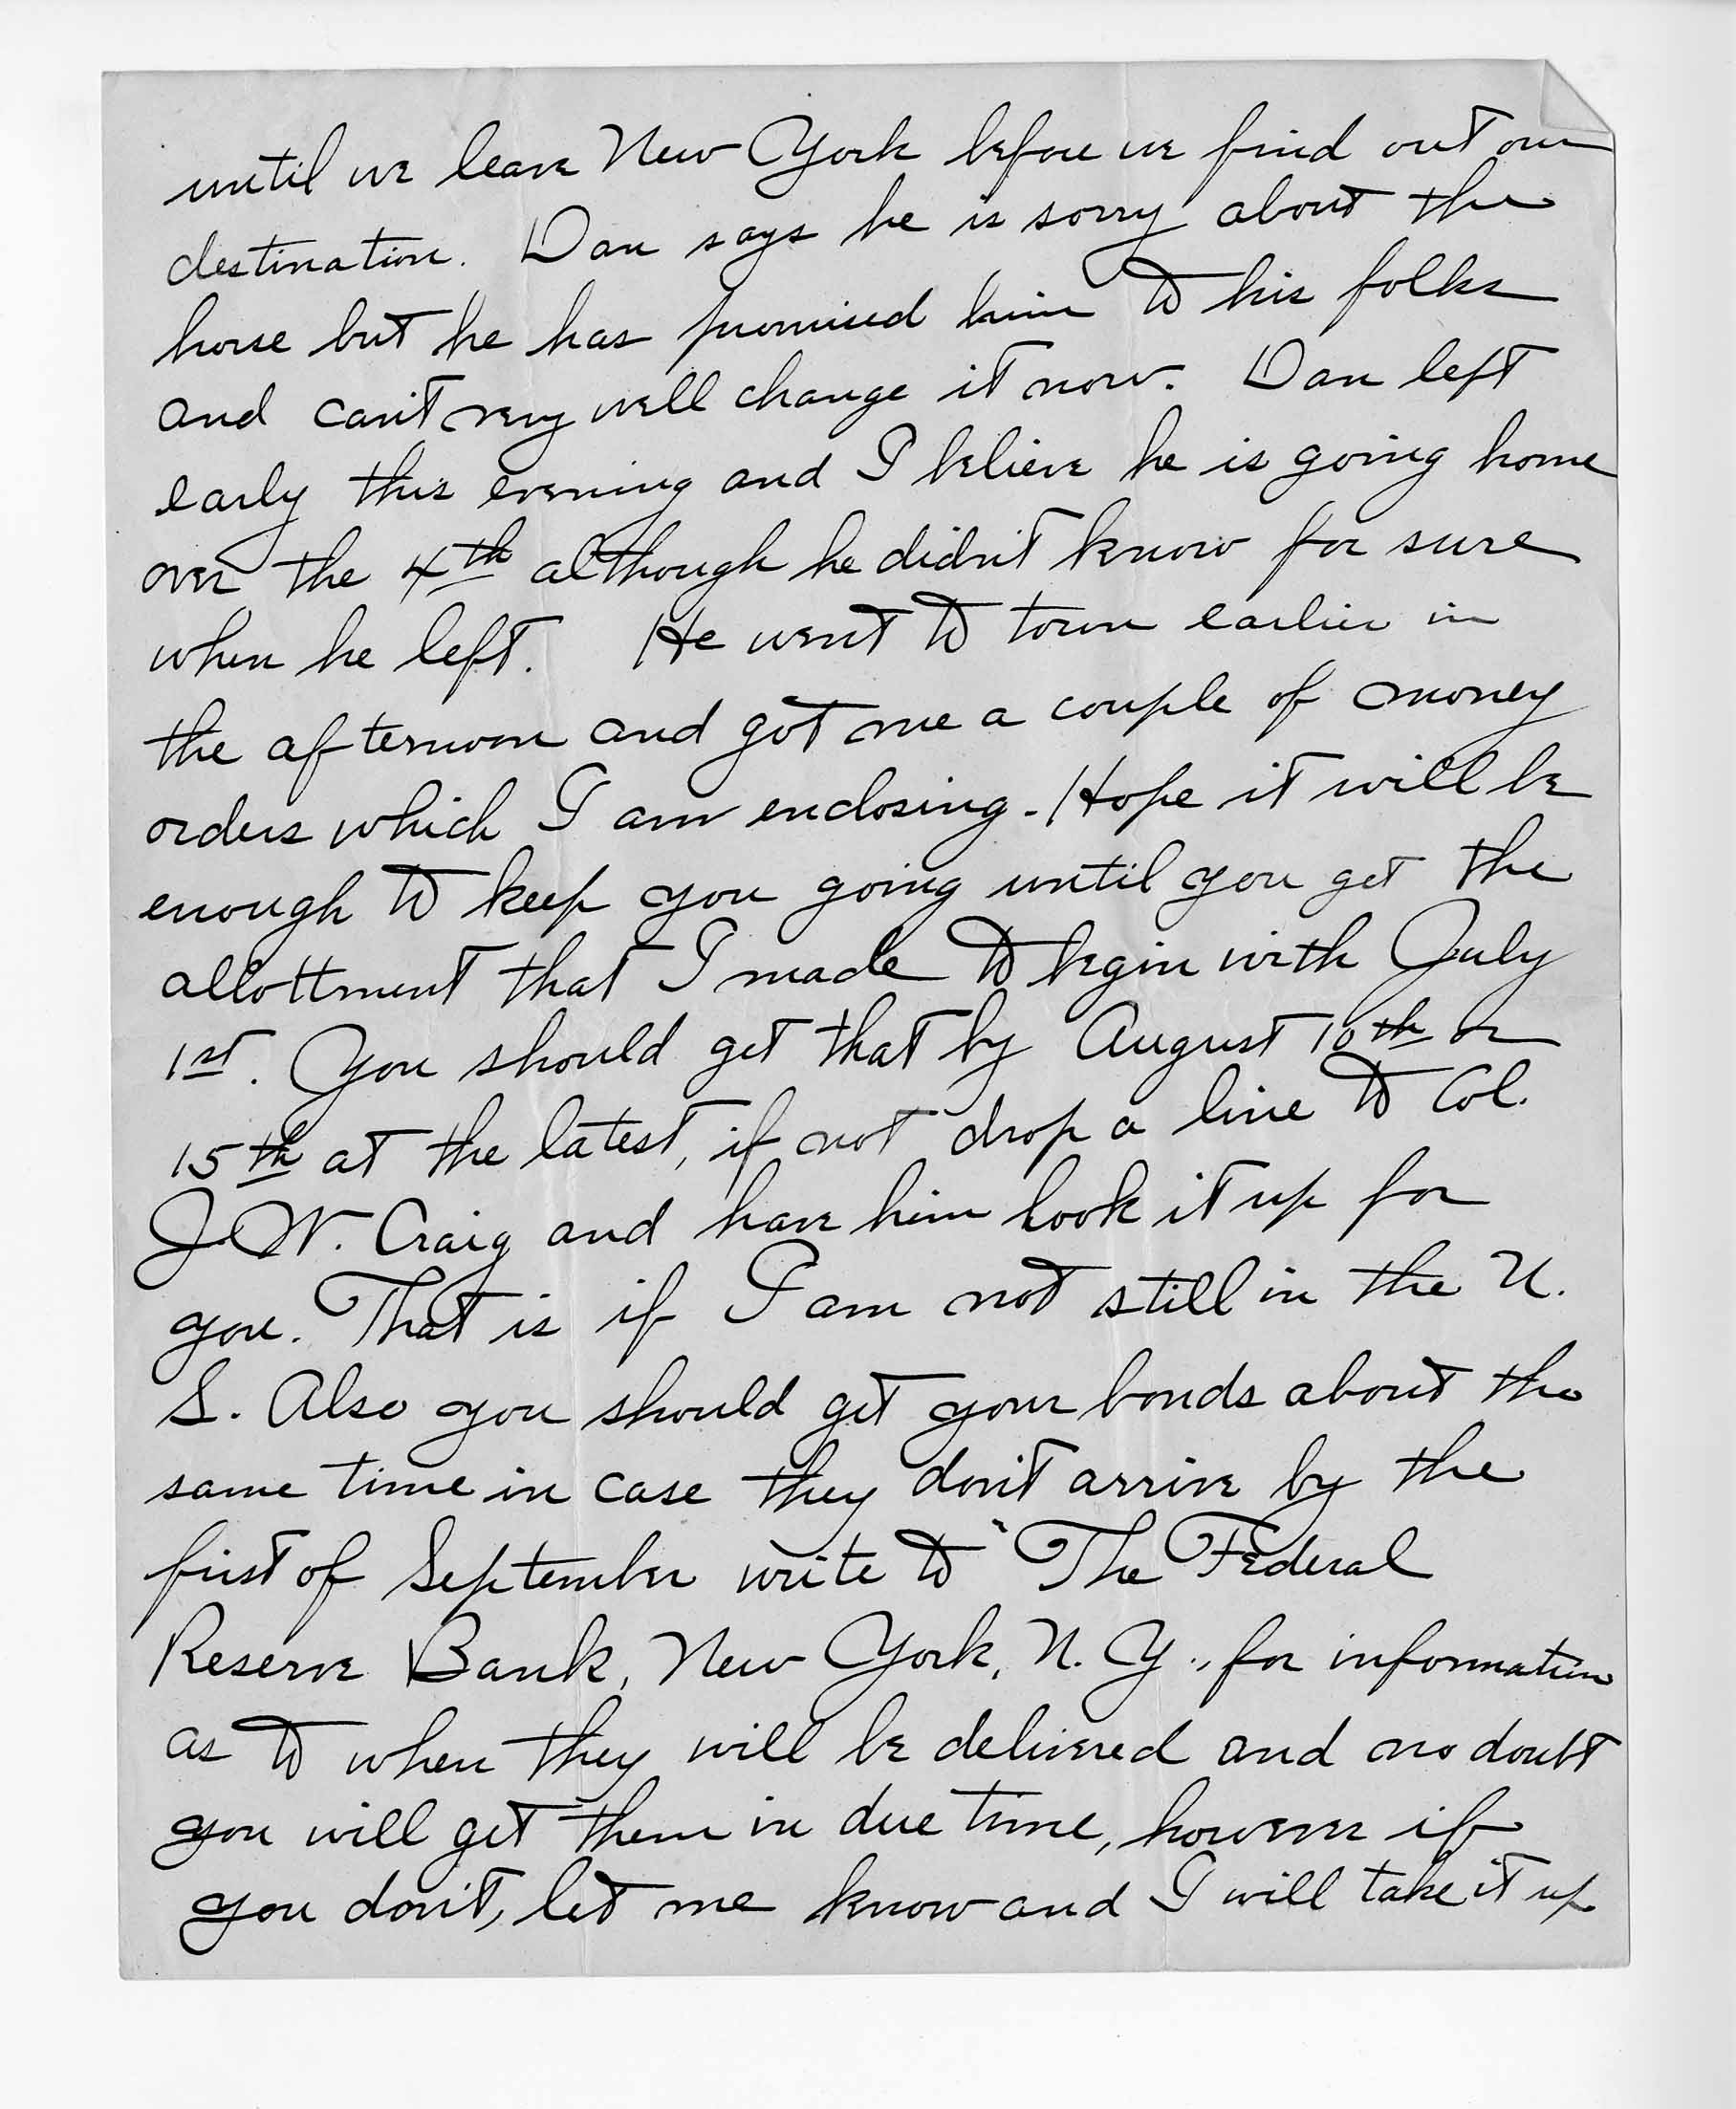 until we leave New York before we find out our
destination. Dan says he is sorry about the
horse but he has promised him to his folks
and can't very well change it now. Dan left
early this evening and I believe he is going home
over the 4th although he didn't know for sure
when he left. He went to town earlier in
the afternoon and got me a couple of money
orders which I am enclosing. Hope it will be
enough to keep you going until you get the
allottment that I made to begin with July
1st. You should get that by August 10th or
15th at the latest, if not drop a line to Col.
J.W. Craig and have him look it up for
you. That is if I am not still in the U.
S. Also you should get your bonds about the
same time in case they don't arrive by the
first of September write to "The Federal
Reserve Bank, New York, N. Y., for information
as to when they will be delivered and no doubt
you will get them in due time, however if
you don't, let me know and I will take it up